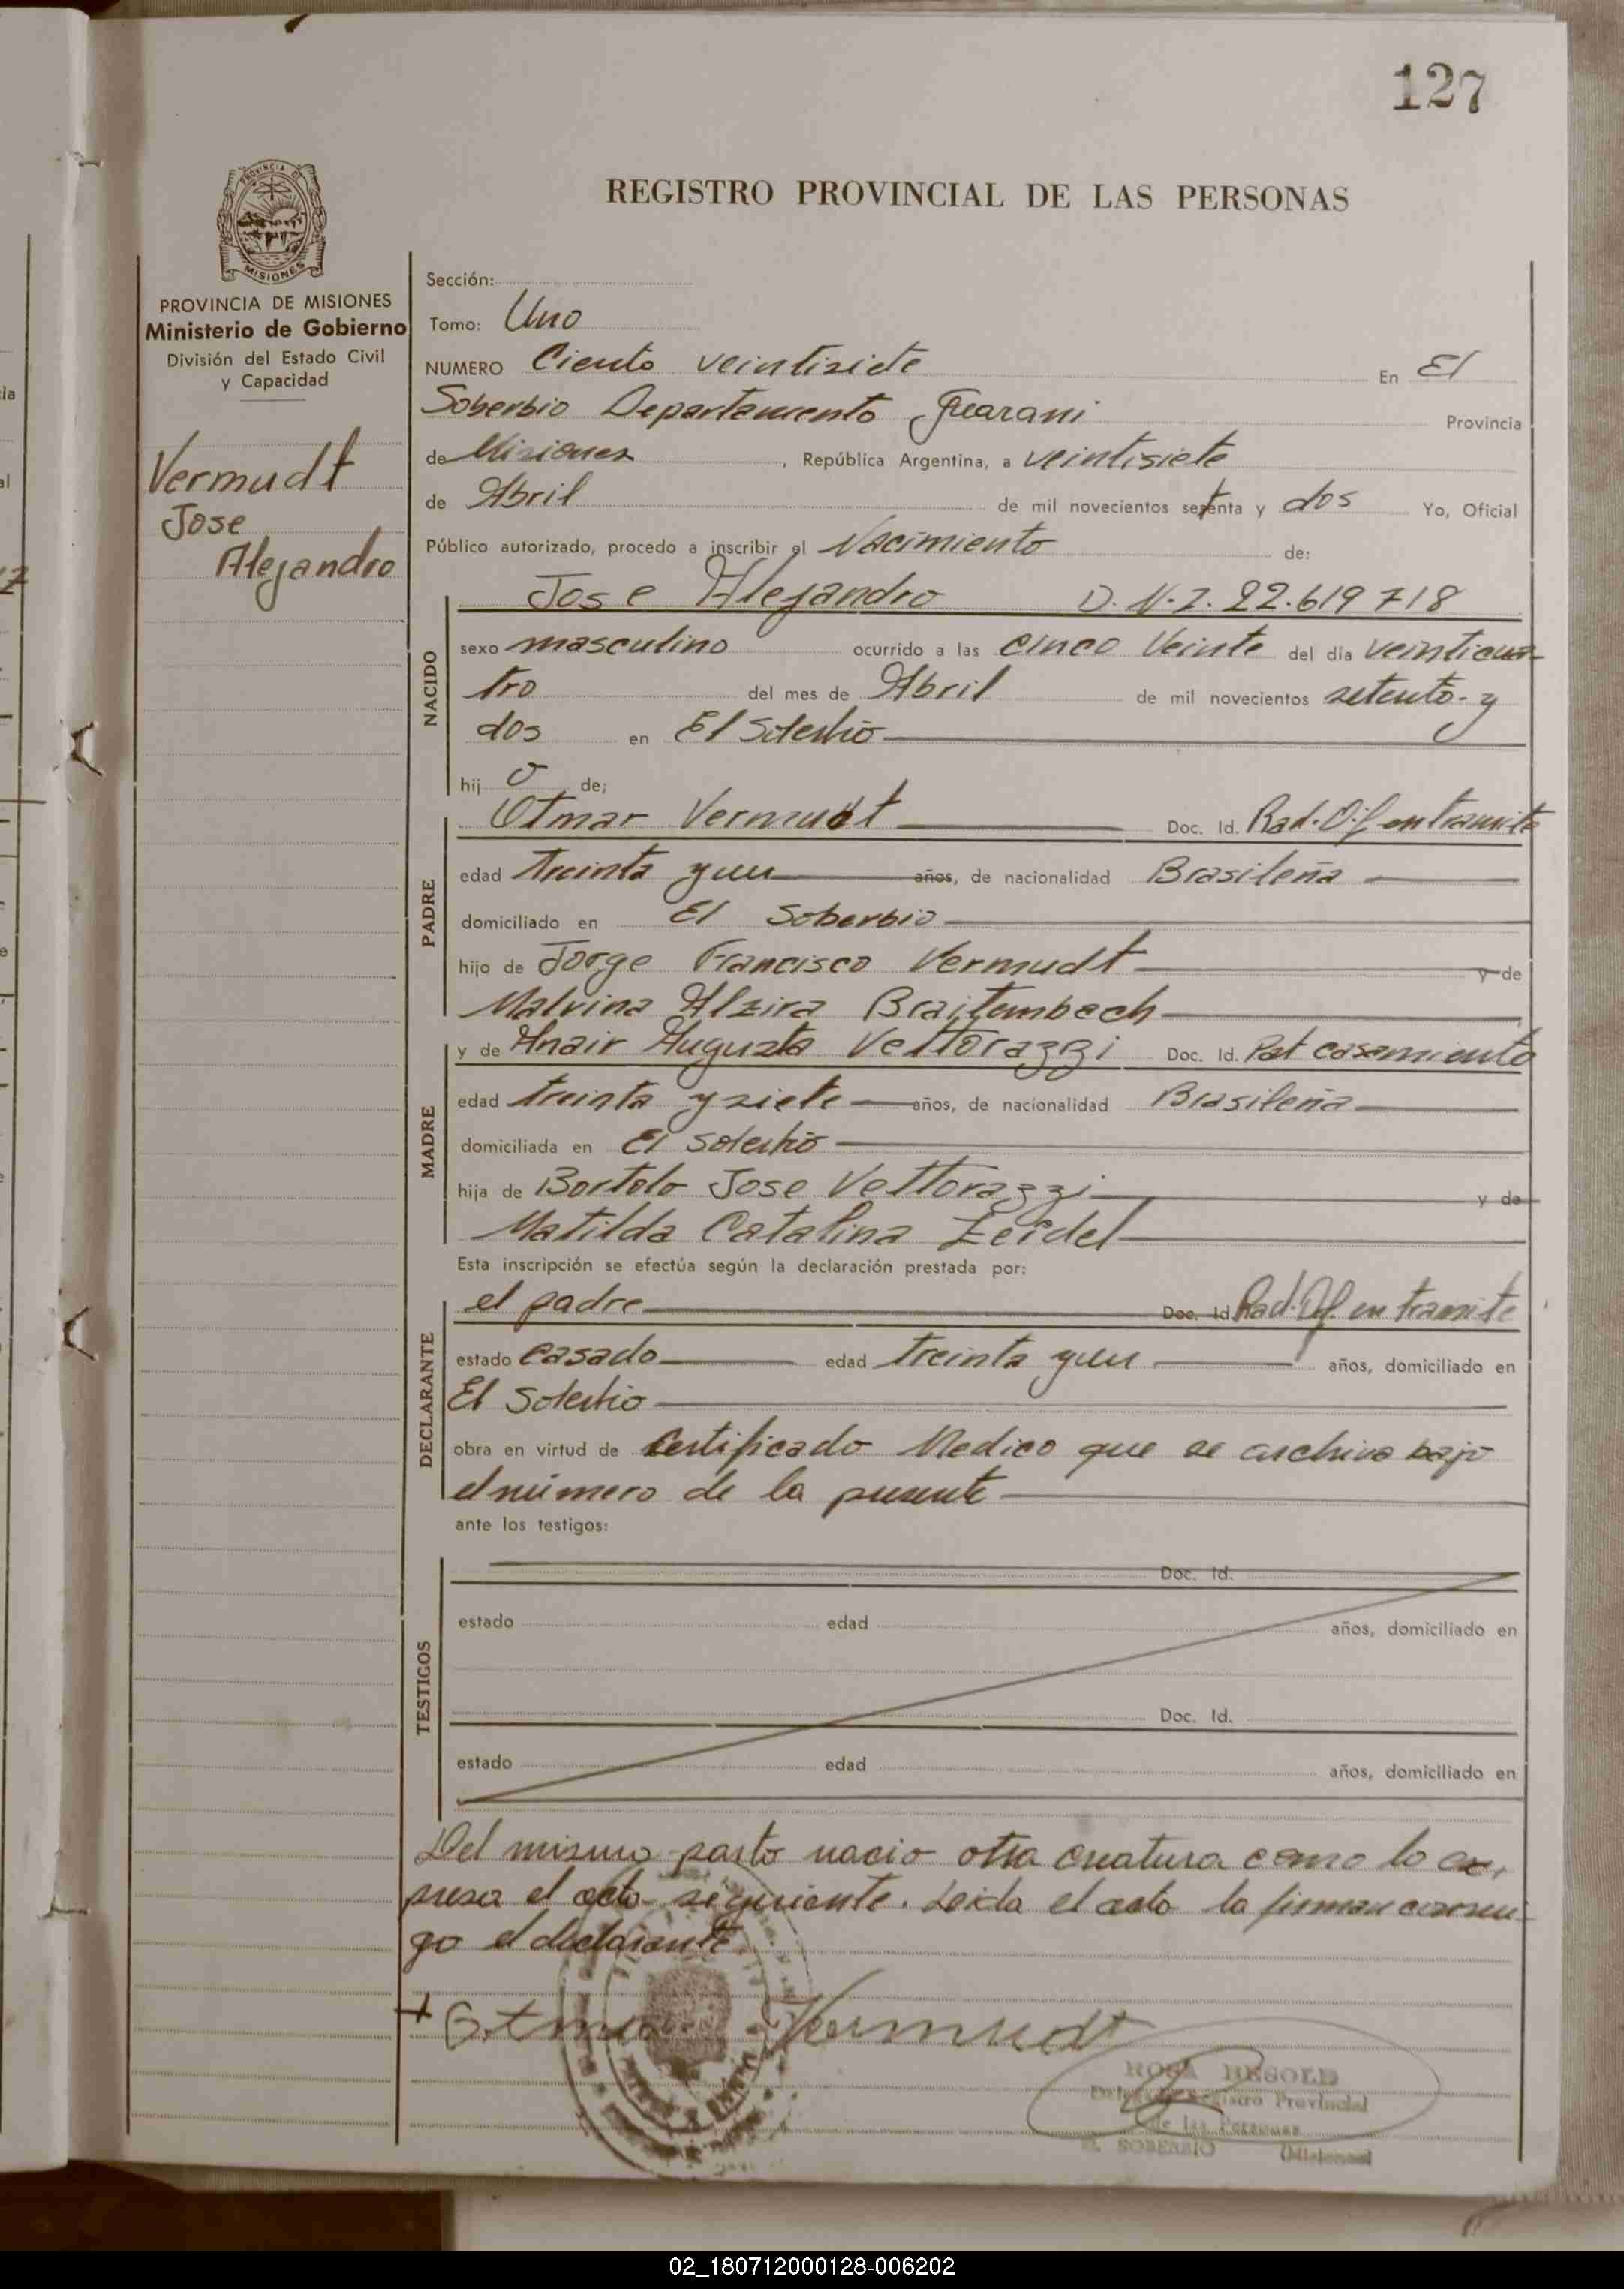 127
PROVINCIA DE
MISIONES
REGISTRO PROVINCIAL DE LAS PERSONAS
PROVINCIA DE MISIONES
Ministerio de Gobierno
División del Estado Civil
y Capacidad
Vermudt
Jose
Alejandro
Sección:
Tomo: Uno
NUMERO Ciento veintisiete En El
Soberbio Departamento Guarani Provincia
de Misiones, República Argentina, a veintisiete
de Abril de mil novecientos setenta y dos Yo, Oficial
Público autorizado, procedo a inscribir el Nacimiento de:
NACIDO
Jose Alejandro D.N.I. 22.619718
sexo masculino ocurrido a las cinco veinte del día veinticua-
tro del mes de Abril de mil novecientos setenta y
dos en El Soberbio
hij o de;
PADRE
Otmar Vermudt Doc. Id. Rad. Of en tramite
edad treinta y un años, de nacionalidad Brasileña
domiciliado en El Soberbio
hijo de Jorge Francisco Vermudt y de
Malvina Alzira Braitembach
MADRE
y de Anair Augusta Vettorazzi Doc. Id. Pat casamiento
edad treinta y siete años, de nacionalidad Brasileña
domiciliada en El Soberbio
hija de Bortolo Jose Vettorazzi y de
Matilda Catalina Zeidel
Esta inscripción se efectúa según la declaración prestada por:
DECLARANTE
el padre Doc. Id. Rad. Of. en tramite
estado casado edad treinta y un años, domiciliado en
El Soberbio
obra en virtud de Certificado Medico que se archiva bajo
el número de la presente
ante los testigos:
TESTIGOS
Doc. Id.
estado edad años, domiciliado en
Doc. Id.
estado edad años, domiciliado en
Del mismo parto nacio otra creatura como lo ex,
presa el acta siguiente. Leida el acta la firman conmi-
go el declarante.
+ Otmar Vermudt
ROSA BESOLD
Registro Provincial
de las Personas
EL SOBERBIO (Misiones)
02_180712000128-006202